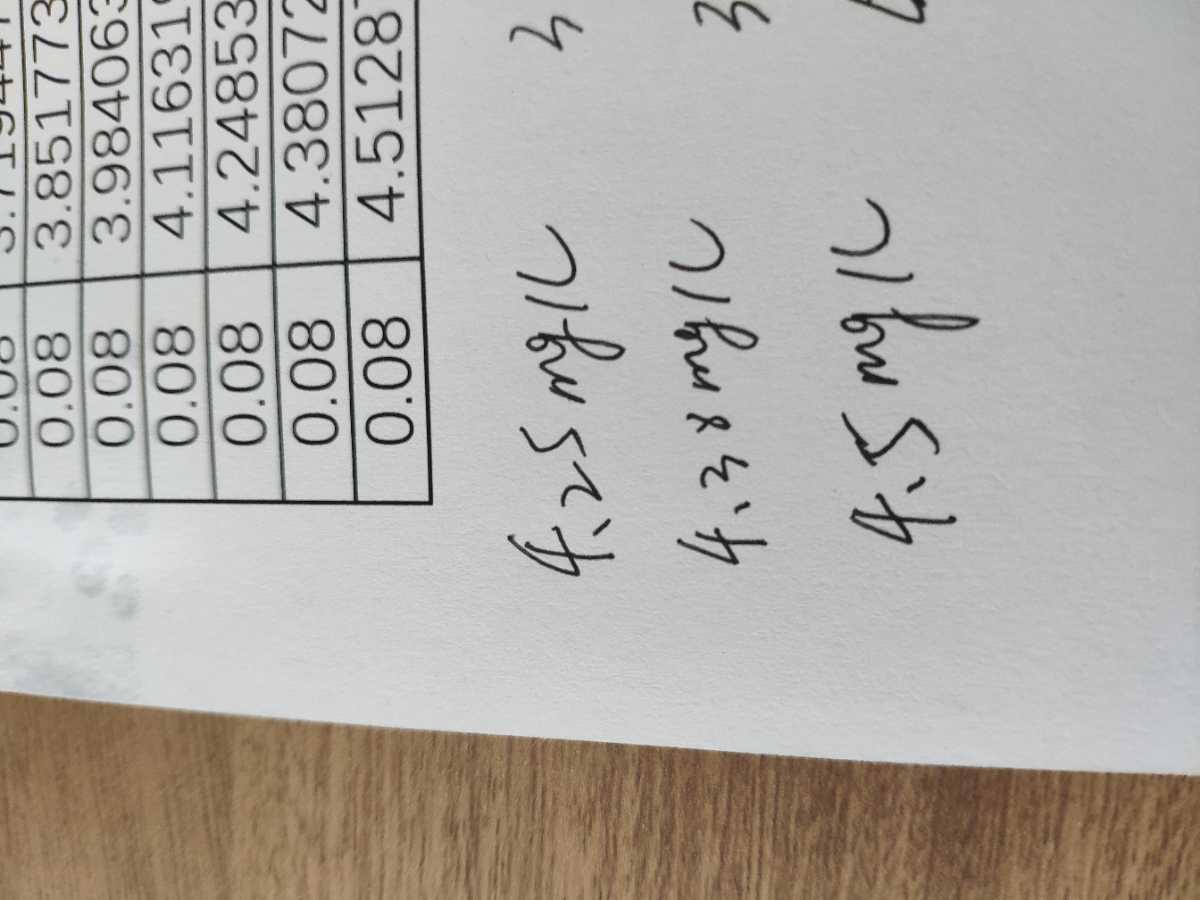 0.08 3.719447
0.08 3.851773
0.08 3.984063
0.08 4.11631
0.08 4.24853
0.08 4.38072
0.08 4.5128
4.25 mg/L 3
4.38 mg/L 3
4.5 mg/L